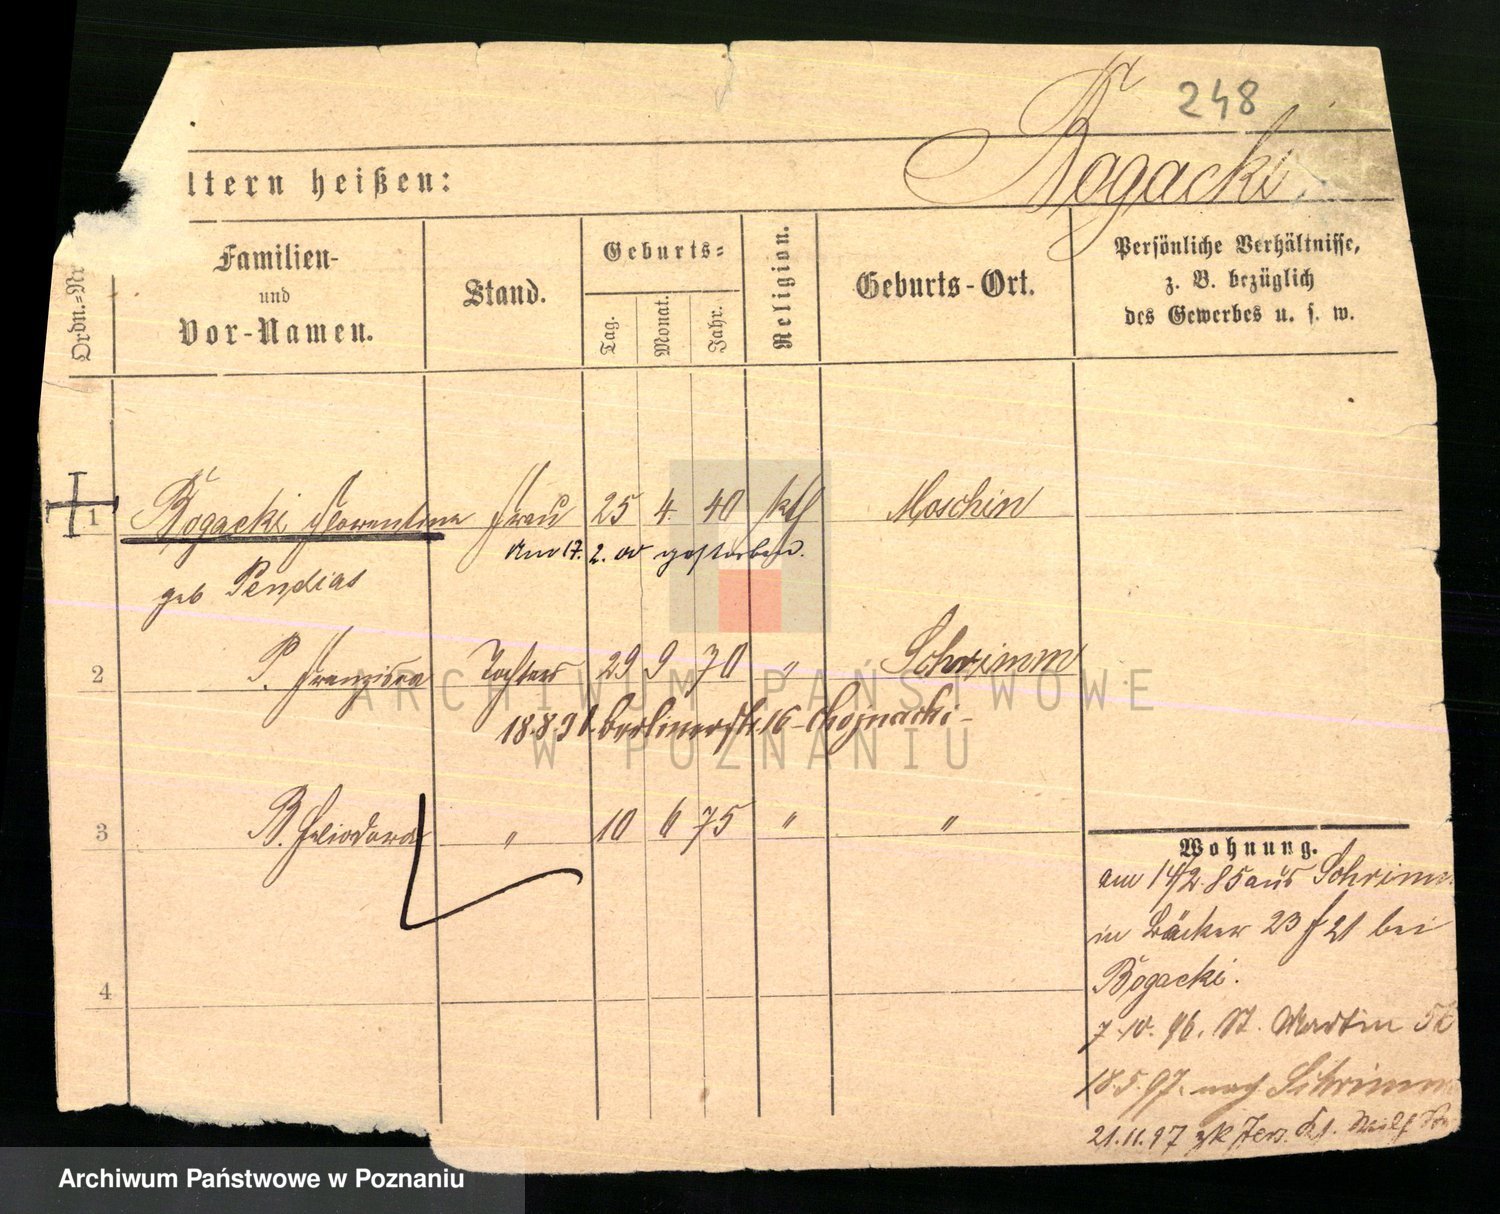 248
Bogacki
ltern heißen:
Ordn.=Nr
Familien- und Vor-Namen.
Stand.
Geburts=
Tag.
Monat.
Jahr.
Religion.
Geburts-Ort.
Persönliche Verhältnisse,
z. B. bezüglich
des Gewerbes u. s. w.
1 Bogacki Florentine Frau 25 4. 40 kth Moschin
am 17. 2. 00 gestorben.
geb Pendias
2 Franziska Tochter 29 9 70 " Schrimm
18.8.91. Berlinerstr. 16 -
3 B. " 10 6 75 " "
4
Wohnung.
am 14/2. 85 aus Schrimm
in Bäcker 23 f 21 bei
Bogacki.
7. 10. 96. St. Martin
18.5.97. nach Schrimm
21.11.97 zk
ARCHIWUM PAŃSTWOWE
W POZNANIU
Archiwum Państwowe w Poznaniu